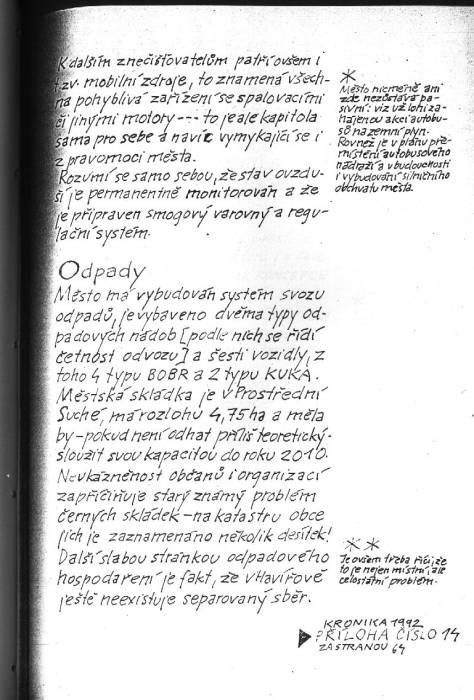 K dalším znečišťovatelům patří ovšem i
tzv. mobilní zdroje, to znamená všech-
na pohyblivá zařízení se spalovacími
či jinými motory --- to je ale kapitola
sama pro sebe a navíc vymykající se i
z pravomoci města.
Rozumí se samo sebou, že stav ovzdu-
ší je permanentně monitorován a že
je připraven smogový varovný a regu-
lační systém.
*
Město nicméně ani
zde nezůstává pa-
sivní: viz už loni za-
hájenou akci autobu-
sů na zemní plyn.
Rovněž je v plánu pře-
místění autobusového
nádraží a v budoucnosti
i vybudování silničního
obchvatu města.
Odpady
Město má vybudován systém svozu
odpadů, je vybaveno dvěma typy od-
padových nádob [podle nich se řídí
četnost odvozu] a šesti vozidly, z
toho 4 typu BOBR a 2 typu KUKA.
Městská skládka je v Prostřední
Suché, má rozlohu 4,75 ha a měla
by - pokud není odhat příliš teoretický -
sloužit svou kapacitou do roku 2010.
Neukázněnost občanů i organizací
zapříčiňuje starý známý problém
černých skládek - na katastru obce
jich je zaznamenáno několik desítek!
Další slabou stránkou odpadového
hospodaření je fakt, že v Havířově
ještě neexistuje separovaný sběr.
**
Je ovšem třeba říci, že
to je nejen místní, ale
celostátní problém.
KRONIKA 1992
PŘÍLOHA ČÍSLO 14
ZA STRANOU 64